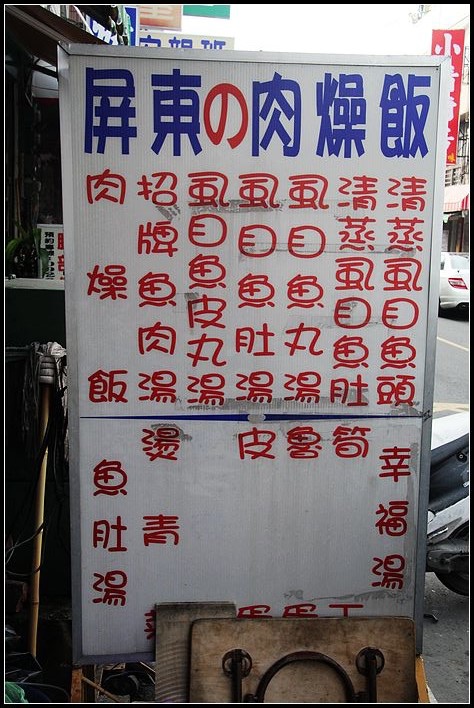 屏東の肉燥飯
清蒸虱目魚頭
清蒸虱目魚肚
虱目魚丸湯
虱目魚肚湯
虱目魚皮丸湯
招牌魚肉湯
肉燥飯
幸福湯
筍
魯蛋
皮蛋
燙青菜
魚肚湯
安親班
小